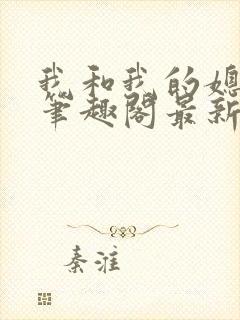 我和我的媳
笔趣阁最新
秦淮